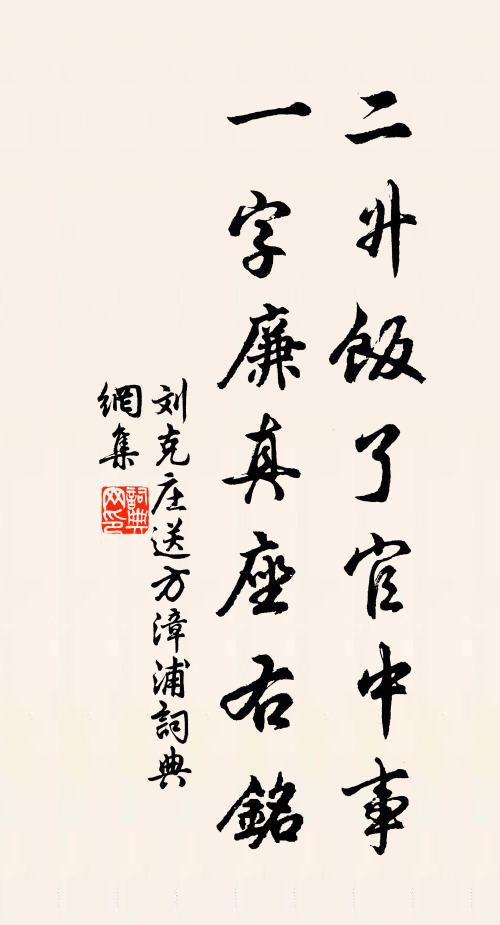 二升飯了官中事
一字廉真座右銘
刘克庄送方漳浦詞典
網集
詞典
网印